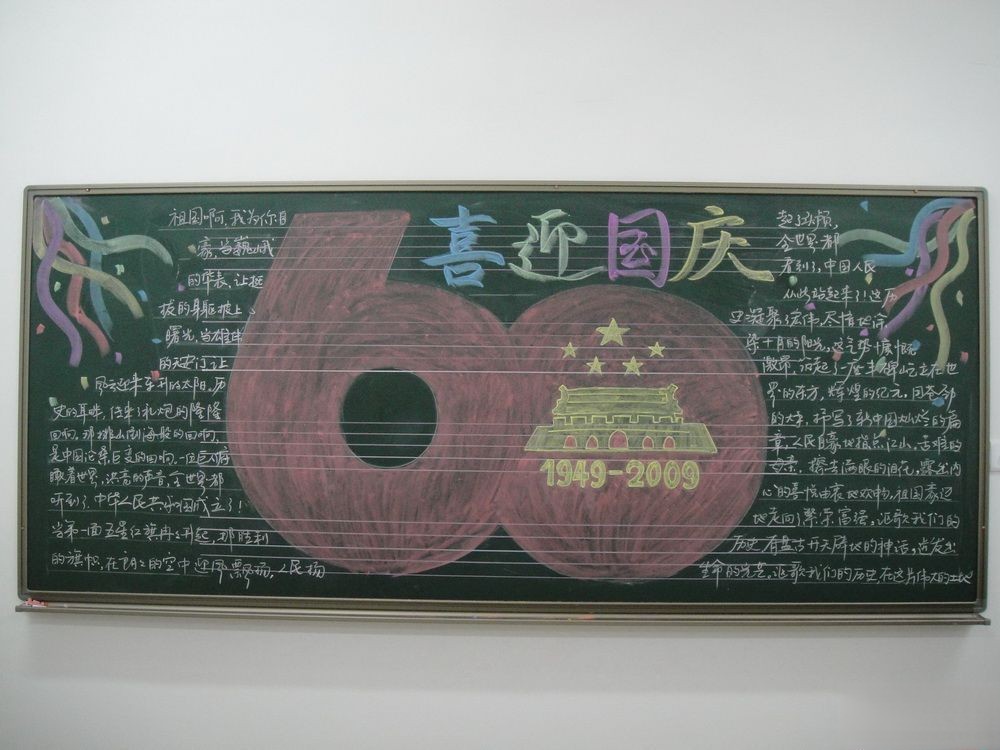 喜迎国庆
60
1949-2009
祖国啊,我为你自
豪,当巍峨
的华表,让挺
拔的身躯披上
曙光,当雄伟
的天安门让
风云迎来东升的太阳,历
史的耳畔,传来了礼炮的隆隆
回响,那排山倒海般的回响,
是中国沧桑巨变的回响,一位巨人俯
瞰着世界,洪亮的声音,全世界都
听到了,中华人民共和国成立了!
当第一面五星红旗冉冉升起,那胜利
的旗帜,在朗朗的空中迎风飘扬,人民扬
起了头颅,
全世界都
看到了,中国人民
从此站起来了!这历
史凝聚了宏伟,尽情地涂
染十月的阳光,这气势慷慨
激昂,筑起了一座丰碑屹立在世
界的东方,辉煌的亿元,用苍劲
的大手,抒写了新中国灿烂的篇
章,人民自豪地指点江山,苦难的
母亲,擦去满眼的泪花,露出内
心的喜悦由衷地欢畅,祖国豪迈
地走向了繁荣富强,讴歌我们的
历史,有盘古开天辟地的神话,迸发出
生命的光芒,讴歌我们的历史在这片伟大的土地